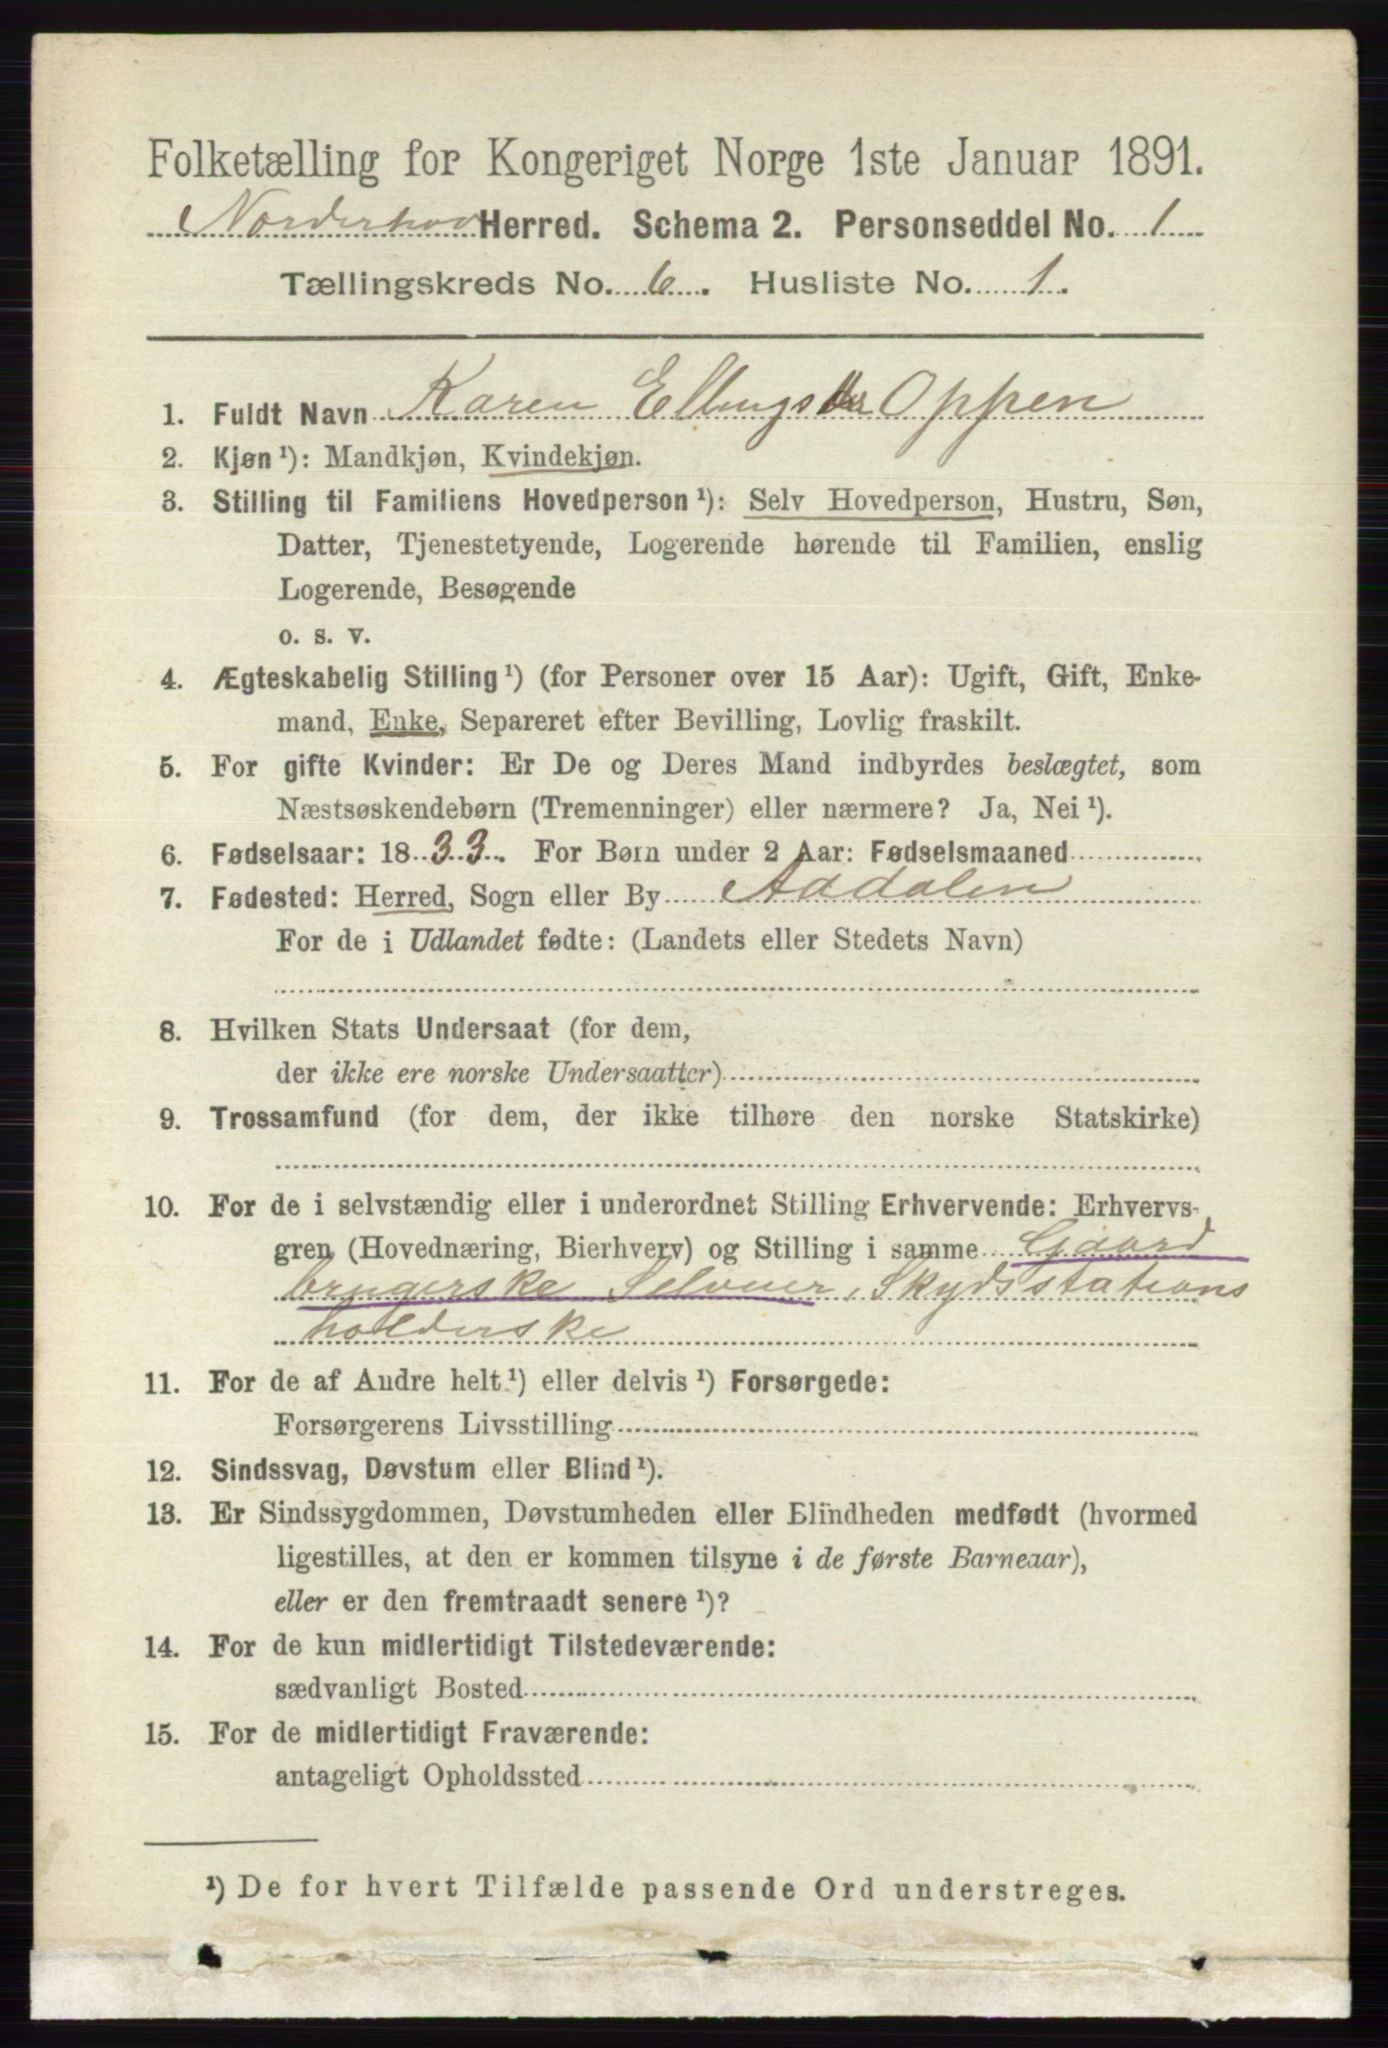 Folketælling for Kongeriget Norge 1ste Januar 1891.
Norderhov Herred. Schema 2. Personseddel No. 1
Tællingskreds No. 6. Husliste No. 1.
1. Fuldt Navn Karen Ellingsdtr Oppen
2. Kjøn ¹): Mandkjøn, Kvindekjøn.
3. Stilling til Familiens Hovedperson ¹): Selv Hovedperson, Hustru, Søn,
Datter, Tjenestetyende, Logerende hørende til Familien, enslig
Logerende, Besøgende
o. s. v.
4. Ægteskabelig Stilling ¹) (for Personer over 15 Aar): Ugift, Gift, Enke-
mand, Enke, Separeret efter Bevilling, Lovlig fraskilt.
5. For gifte Kvinder: Er De og Deres Mand indbyrdes beslægtet, som
Næstsøskendebørn (Tremenninger) eller nærmere? Ja, Nei ¹).
6. Fødselsaar: 1833. For Børn under 2 Aar: Fødselsmaaned
7. Fødested: Herred, Sogn eller By Aadalen
For de i Udlandet fødte: (Landets eller Stedets Navn)
8. Hvilken Stats Undersaat (for dem,
der ikke ere norske Undersaatter)
9. Trossamfund (for dem, der ikke tilhøre den norske Statskirke)
10. For de i selvstændig eller i underordnet Stilling Erhvervende: Erhvervs-
gren (Hovednæring, Bierhverv) og Stilling i samme Gaard
brugerske Selveier, Skydsstations
holderske
11. For de af Andre helt ¹) eller delvis ¹) Forsørgede:
Forsørgerens Livsstilling
12. Sindssvag, Døvstum eller Blind ¹).
13. Er Sindssygdommen, Døvstumheden eller Blindheden medfødt (hvormed
ligestilles, at den er kommen tilsyne i de første Barneaar),
eller er den fremtraadt senere ¹)?
14. For de kun midlertidigt Tilstedeværende:
sædvanligt Bosted
15. For de midlertidigt Fraværende:
antageligt Opholdssted
¹) De for hvert Tilfælde passende Ord understreges.